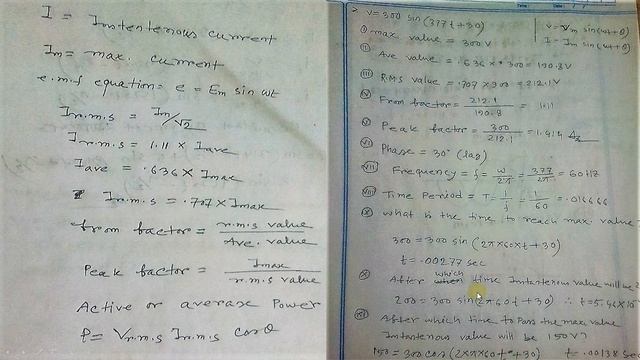 I = Instentenous current
Im = max. current
e.m.f equation = e = Em sin wt
Ir.m.s = Im/√2
Ir.m.s = 1.11 × Iave
Iave = .636 × Imax
Ir.m.s = .707 × Imax
from factor = r.m.s value / Ave. value
Peak factor = Imax / r.m.s value
Active or average Power
P = Vr.m.s Ir.m.s cosθ
V = 300 sin (377t + 30)
V = Vm sin(wt + θ)
I = Im sin(wt + θ)
(i) max value = 300V
(ii) Ave value = .636 × 300 = 190.8V
(iii) R.M.S value = .707 × 300 = 212.1V
(iv) From factor = 212.1 / 190.8 = 1.11
(v) Peak factor = 300 / 212.1 = 1.414
(vi) Phase = 30° (lag)
(vii) Frequency = f = w/2π = 377/2π = 60Hz
(viii) Time Period = T = 1/f = 1/60 = .016666
What is the time to reach max. value
300 = 300 sin (2π×60×t + 30)
t = .00277 sec
(x) After which time Instantenous value will be 2
200 = 300 sin(2π60t + 30) ∴ t = 5.46×10
(xi) After which time to Pass the max value
Instantenous value will be 150V?
150 = 300 cos (2×π×60t + 30) t = .00138 sec